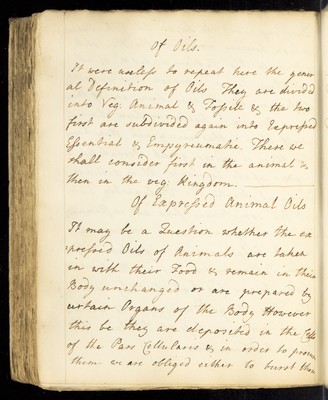 Of Oils.
It were useless to repeat here the gener
al Definition of Oils They are divided
into Veg: Animal & Fossile & the two
first are subdivided again into Expressed
Essential & Empyreumatic. These we
shall consider first in the animal &
then in the veg: Kingdom.
Of Expressed Animal Oils
It may be a Question whether the ex
pressed Oils of Animals are taken
in with their Food & remain in their
Body unchanged or are prepared by
certain Organs of the Body However
this be they are deposited in the
of the Pars Cellularis & in order to procure
them we are obliged either to burst them